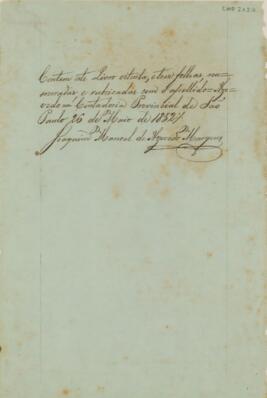 Contem este Livro oitenta, e tres folhas, nu-
meradas e rubricadas com o apellido = Aze-
vedo na Contadoria Provincial de São
Paulo 26 de Maio de 1852
Joaquim Manoel de Azevedo Marques